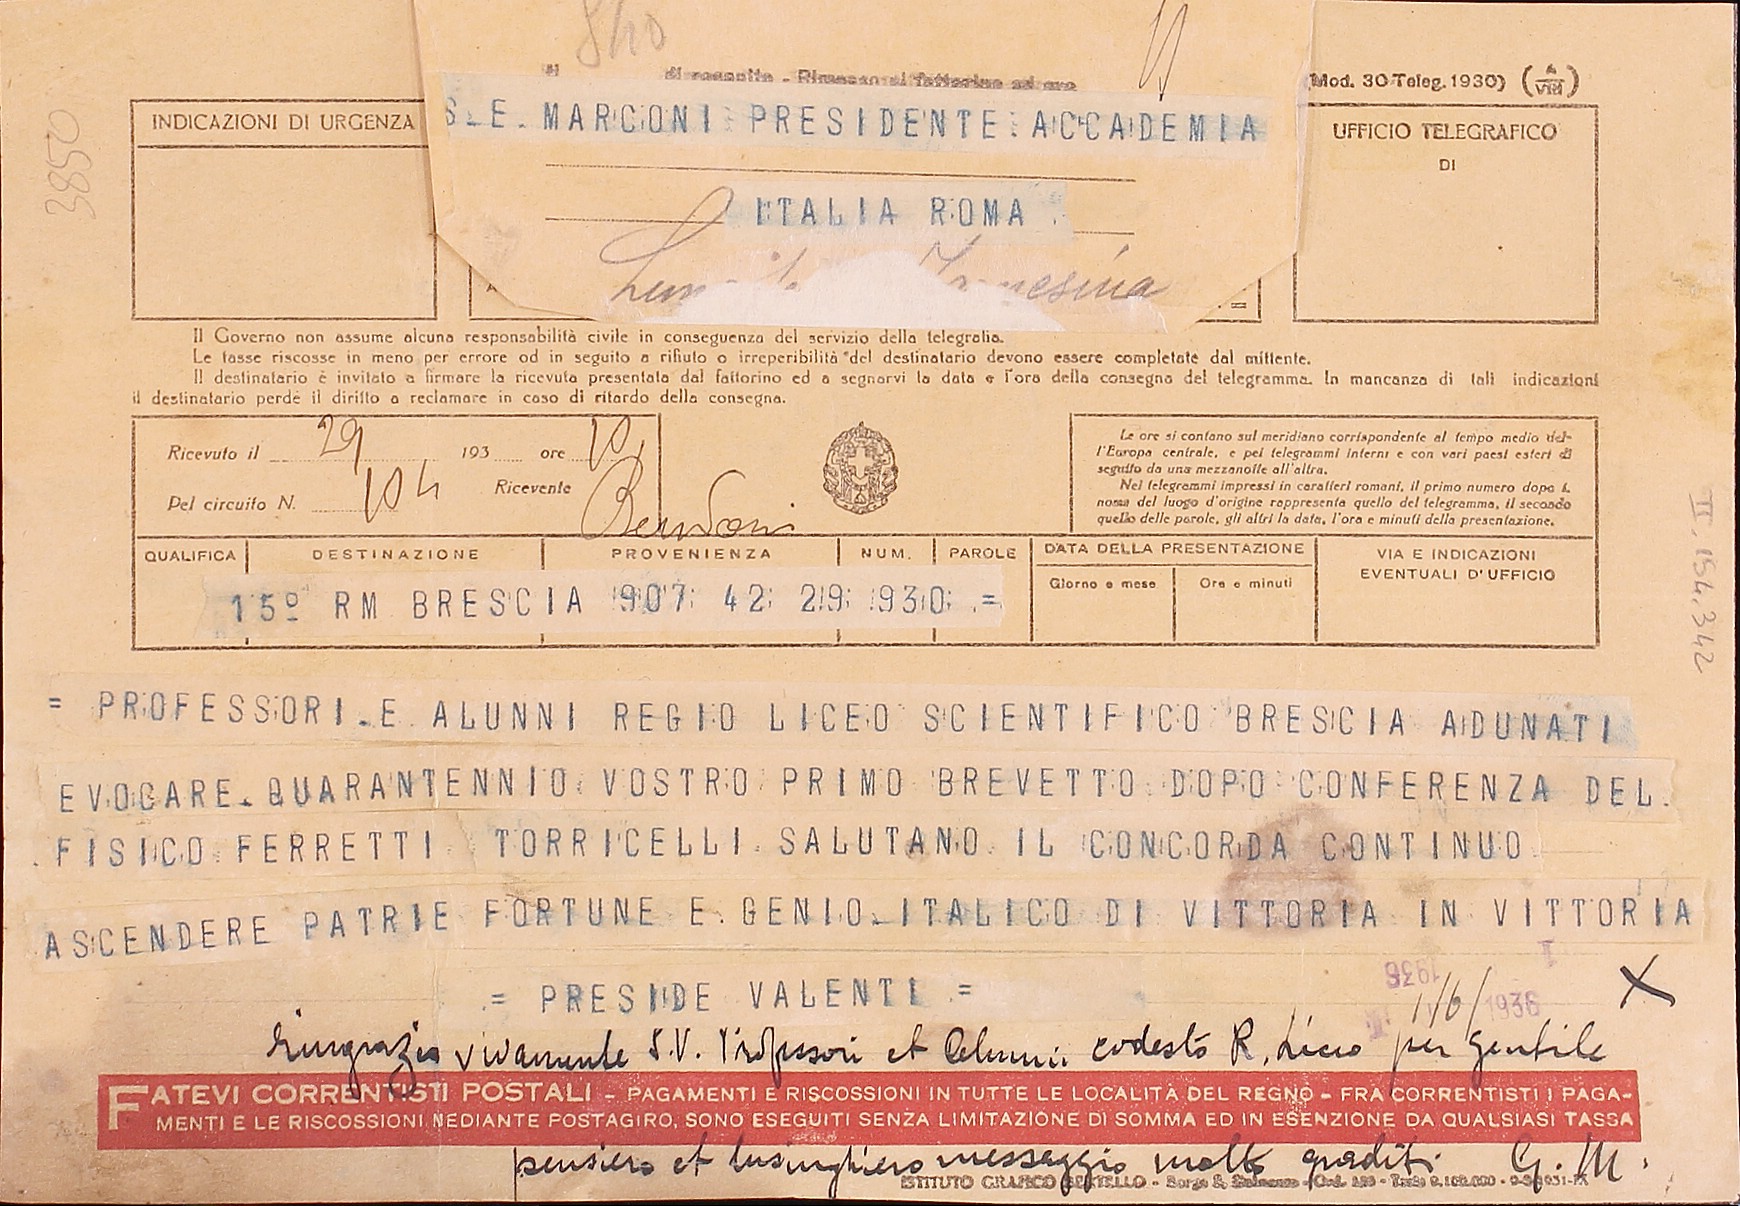 840
di recapito - Rimesso al fattorino ad ore
(Mod. 30-Teleg. 1930) (A/VIII)
3850
INDICAZIONI DI URGENZA
S.E. MARCONI PRESIDENTE ACCADEMIA
ITALIA ROMA
UFFICIO TELEGRAFICO
DI
Il Governo non assume alcuna responsabilità civile in conseguenza del servizio della telegrafia.
Le tasse riscosse in meno per errore od in seguito a rifiuto o irreperibilità del destinatario devono essere completate dal mittente.
Il destinatario è invitato a firmare la ricevuta presentata dal fattorino ed a segnarvi la data e l'ora della consegna del telegramma. In mancanza di tali indicazioni
il destinatario perde il diritto a reclamare in caso di ritardo della consegna.
Ricevuto il 29 193 ore
Pel circuito N. 104 Ricevente
Le ore si contano sul meridiano corrispondente al tempo medio del-
l'Europa centrale, e pei telegrammi interni e con vari paesi esteri di
seguito da una mezzanotte all'altra.
Nei telegrammi impressi in caratteri romani, il primo numero dopo il
nome del luogo d'origine rappresenta quello del telegramma, il secondo
quello delle parole, gli altri la data, l'ora e minuti della presentazione.
QUALIFICA DESTINAZIONE PROVENIENZA NUM. PAROLE DATA DELLA PRESENTAZIONE VIA E INDICAZIONI
EVENTUALI D'UFFICIO
Giorno e mese Ore e minuti
15º RM BRESCIA 907 42 29 1930 =
II.154.342
= PROFESSORI E ALUNNI REGIO LICEO SCIENTIFICO BRESCIA ADUNATI
EVOCARE QUARANTENNIO VOSTRO PRIMO BREVETTO DOPO CONFERENZA DEL
FISICO FERRETTI TORRICELLI SALUTANO IL CONCORDA CONTINUO
ASCENDERE PATRIE FORTUNE E GENIO ITALICO DI VITTORIA IN VITTORIA
= PRESIDE VALENTI =
1936
1/6/1936
X
Ringrazio vivamente S.V. Professori et Alunni codesto R. Liceo per gentile
FATEVI CORRENTISTI POSTALI - PAGAMENTI E RISCOSSIONI IN TUTTE LE LOCALITÀ DEL REGNO - FRA CORRENTISTI I PAGA-
MENTI E LE RISCOSSIONI MEDIANTE POSTAGIRO, SONO ESEGUITI SENZA LIMITAZIONE DI SOMMA ED IN ESENZIONE DA QUALSIASI TASSA
pensiero et lusinghiero messaggio molto graditi. G. M.
ISTITUTO GRAFICO BERTELLO - Borgo S. Dalmazzo